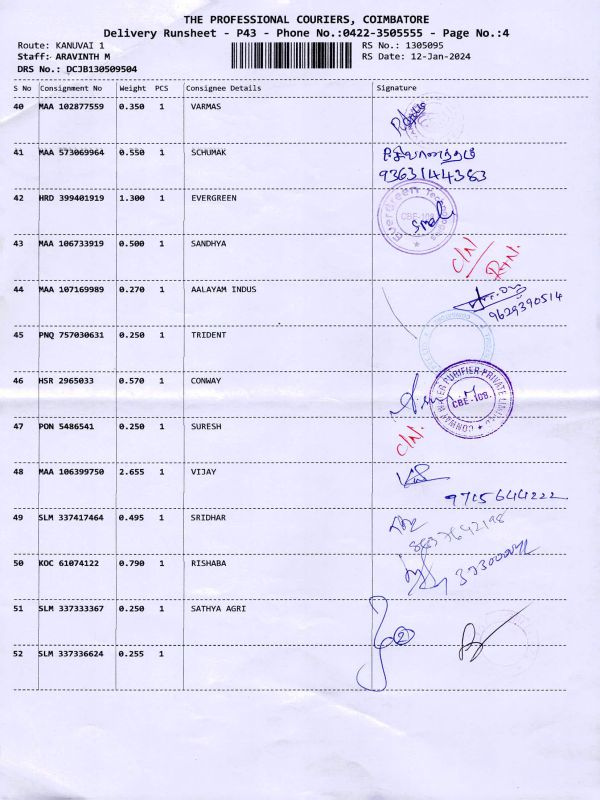 THE PROFESSIONAL COURIERS, COIMBATORE
Delivery Runsheet - P43 - Phone No.:0422-3505555 - Page No.:4
Route: KANUVAI 1
RS No.: 1305095
Staff: ARAVINTH M
RS Date: 12-Jan-2024
DRS No.: DCJB130509504
S No Consignment No Weight PCS Consignee Details Signature
40 MAA 102877559 0.350 1 VARMAS
41 MAA 573069964 0.550 1 SCHUMAK
9363144383
42 HRD 399401919 1.300 1 EVERGREEN
Evergreen
CBE-108
43 MAA 106733919 0.500 1 SANDHYA
C/N
44 MAA 107169989 0.270 1 AALAYAM INDUS
9629390514
45 PNQ 757030631 0.250 1 TRIDENT
46 HSR 2965033 0.570 1 CONWAY
CONWAY WATER PURIFIER PRIVATE LIMITED
CBE-108.
47 PON 5486541 0.250 1 SURESH
C/N.
48 MAA 106399750 2.655 1 VIJAY
9715644222
49 SLM 337417464 0.495 1 SRIDHAR
8837642198
50 KOC 61074122 0.790 1 RISHABA
51 SLM 337333367 0.250 1 SATHYA AGRI
2
52 SLM 337336624 0.255 1